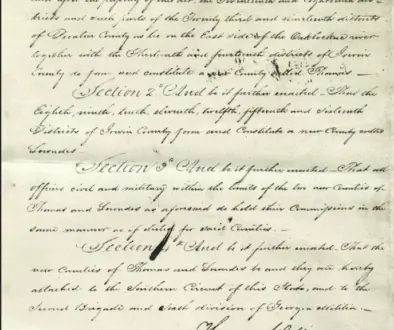 and after the passing of this act, the Seventeenth and Eighteenth dis-
tricts and such parts of the Twenty third and nineteenth districts
of Decatur County as lie on the East side of the Oaklocknee river
together with the thirteenth and fourteenth districts of Irwin
County do form and constitute a new County called Thomas —
Section 2d And be it further enacted — That the
Eighth, ninth, tenth, eleventh, twelfth, fifteenth and sixteenth
Districts of Irwin County form and Constitute a new County called
Lowndes
Section 3d And be it further enacted — That all
officers civil and military within the limits of the two new Counties of
Thomas and Lowndes as aforesaid do hold their Commissions in the
same manner as if elected for said Counties. —
Section 4th And be it further enacted — That the
new Counties of Thomas and Lowndes be and they are hereby
attached to the Southern Circuit of this State, and to
the Second Brigade and sixth division of Georgia Militia. —